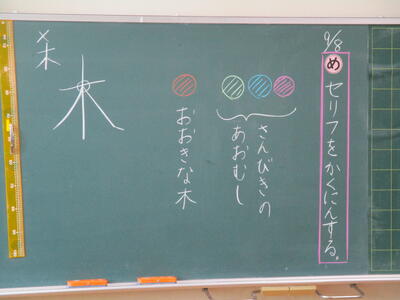 9/8
め セリフをかくにんする。
さんびきの
あおむし
おおきな木
木
×木